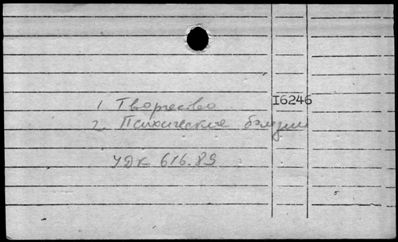 1. Творчество
I6246
2. Психические болезни
УДК 616.89